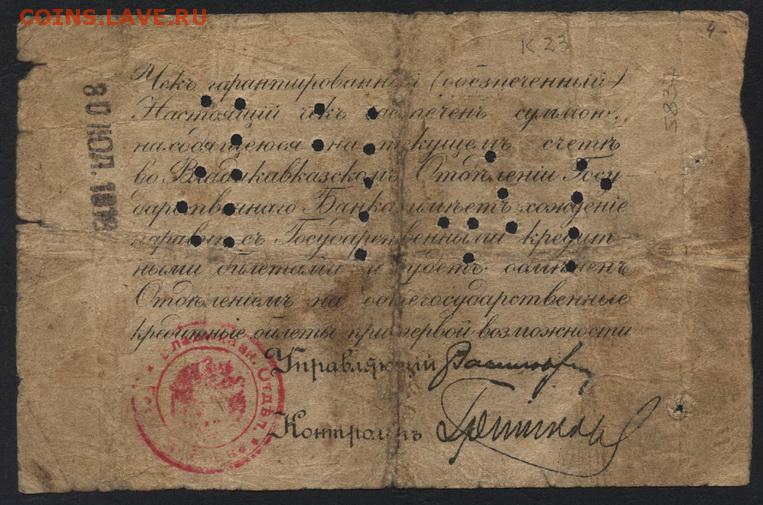 COINS.LAVE.RU
К 23
4
5834
30 ІЮЛ. 1918
Чекъ гарантированный (обезпеченный)
Настоящій чекъ обезпеченъ суммою,
находящеюся на текущемъ счетѣ
во Владикавказскомъ Отдѣленіи Госу
дарственнаго Банка имѣетъ хожденіе
наравнѣ съ Государственными кредит
ными билетами и будетъ обмѣненъ
Отдѣленіемъ на общегосударственные
кредитные билеты при первой возможности
Управляющій
Контролеръ
Отдѣл.